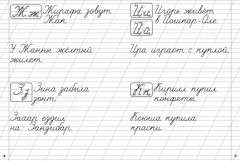 Жж Жирафа зовут
Жак.
У Жанны жёлтый
жилет.
Зз Зина забыла
зонт.
Захар ездил
на Занзибар.
Ии Игорь живёт
Йй в Йошкар-Оле.
Ира играет с куклой.
Кк Кирилл купил
конфеты.
Ксюша купила
краски.